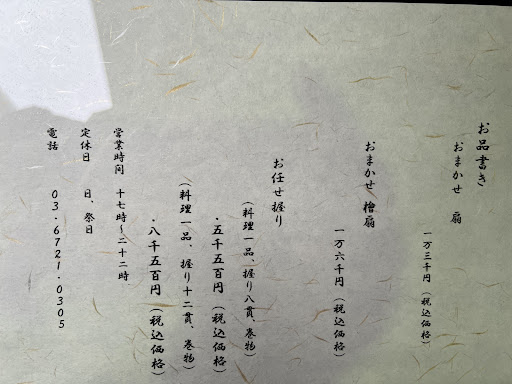 お品書き
おまかせ 扇
一万三千円（税込価格）
おまかせ 檜扇
一万六千円（税込価格）
お任せ握り
（料理一品、握り八貫、巻物）
・五千五百円（税込価格）
（料理一品、握り十二貫、巻物）
・八千五百円（税込価格）
営業時間 十七時～二十二時
定休日 日、祭日
電話 03・6721・0305